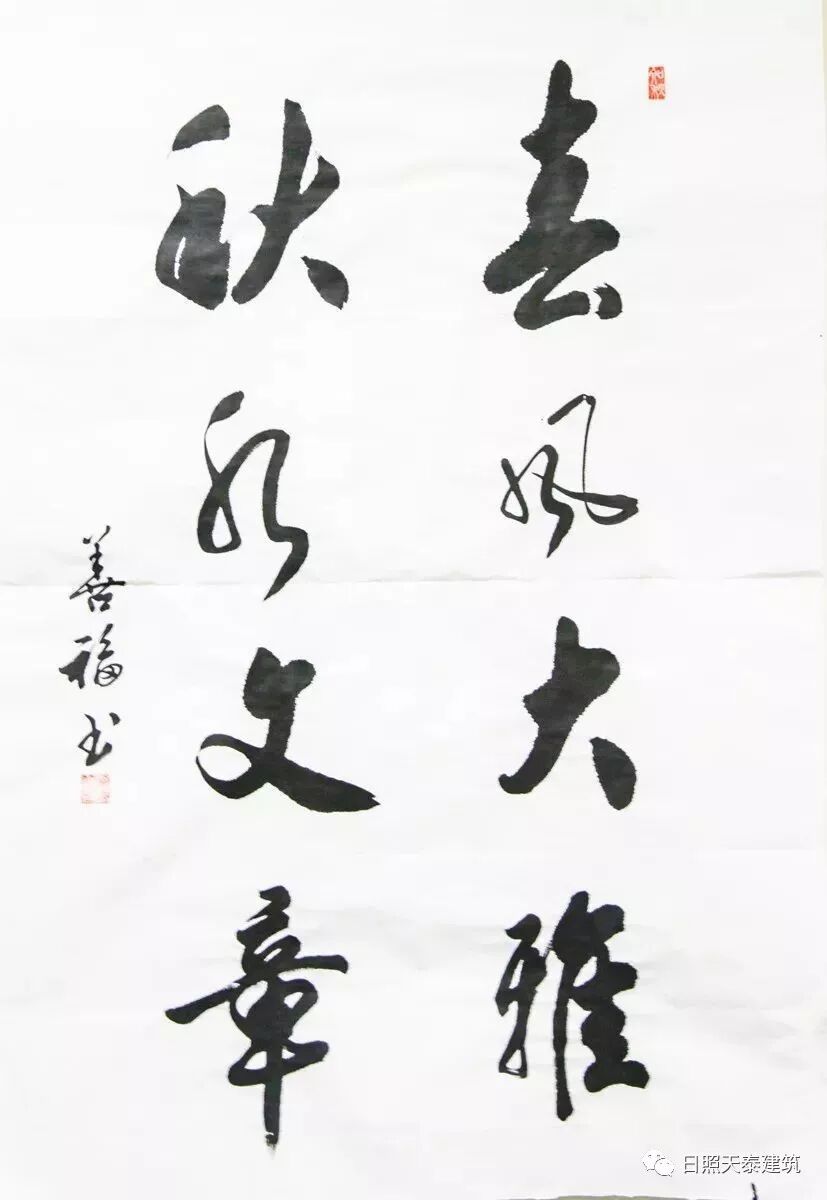 春风大雅
秋水文章
善福书
日照天泰建筑